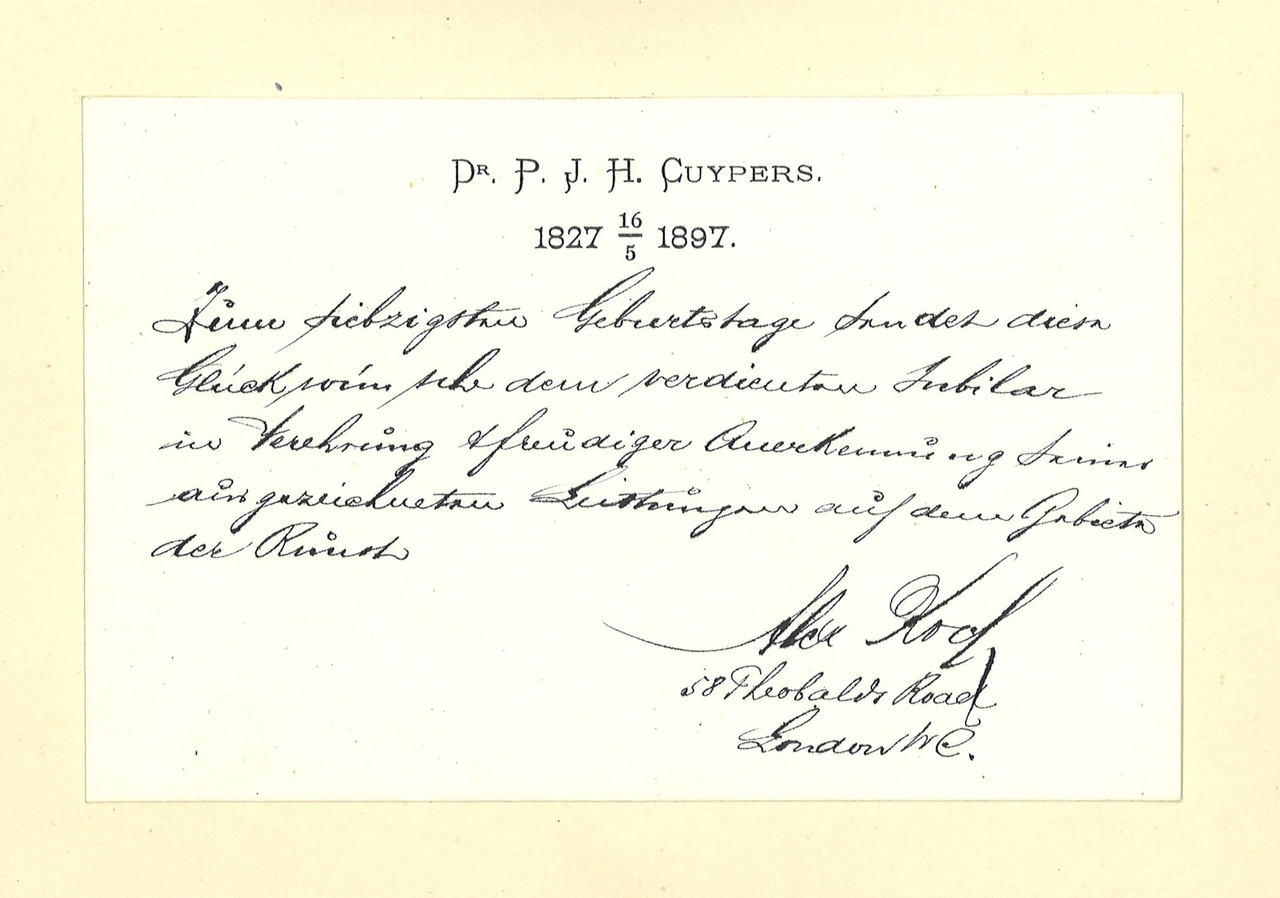 DR. P. J. H. CUYPERS.
1827 16/5 1897.
Zum siebzigsten Geburtstage sendet diese
Glückwünsche dem verdienten Jubilar
in Verehrung & freudiger Anerkennung seiner
ausgezeichneten Leistungen auf dem Gebiete
der Kunst
Alex Koch
58 Theobalds Road
London W C.